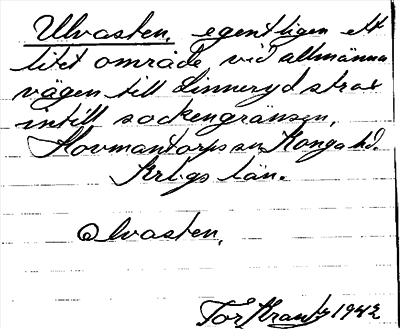 Ulvasten, egentligen ett
litet område vid allmänna
vägen till Linneryd strax
intill sockengränsen,
Hovmantorps sn Konga hd.
Krbgs län.
Olvasten,
Tor Krantz 1942